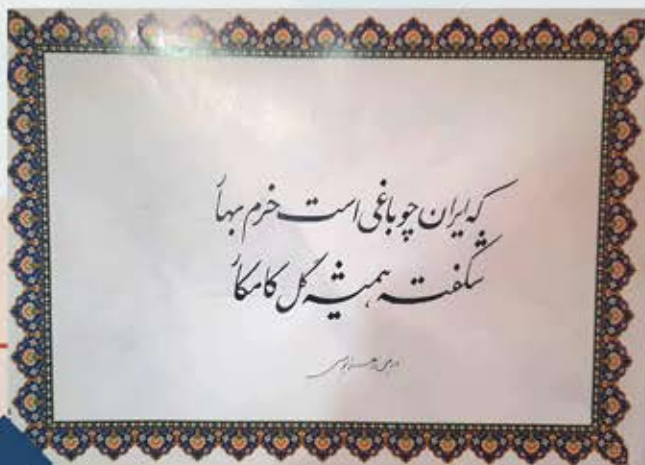 که ایران چو باغی است خرم بهار
شکفته همیشه گل کامکار